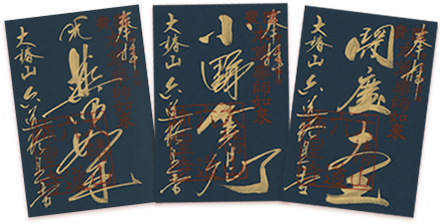 奉拝
閻魔大王
大椿山 六道珍皇寺
奉拝
小野篁卿
大椿山 六道珍皇寺
奉拝
薬師如来
大椿山 六道珍皇寺